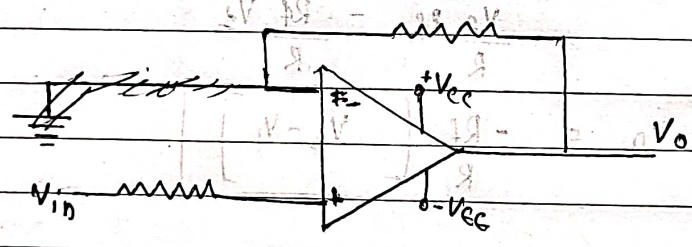 +Vcc
-
Vo
Vin
+
-VEE